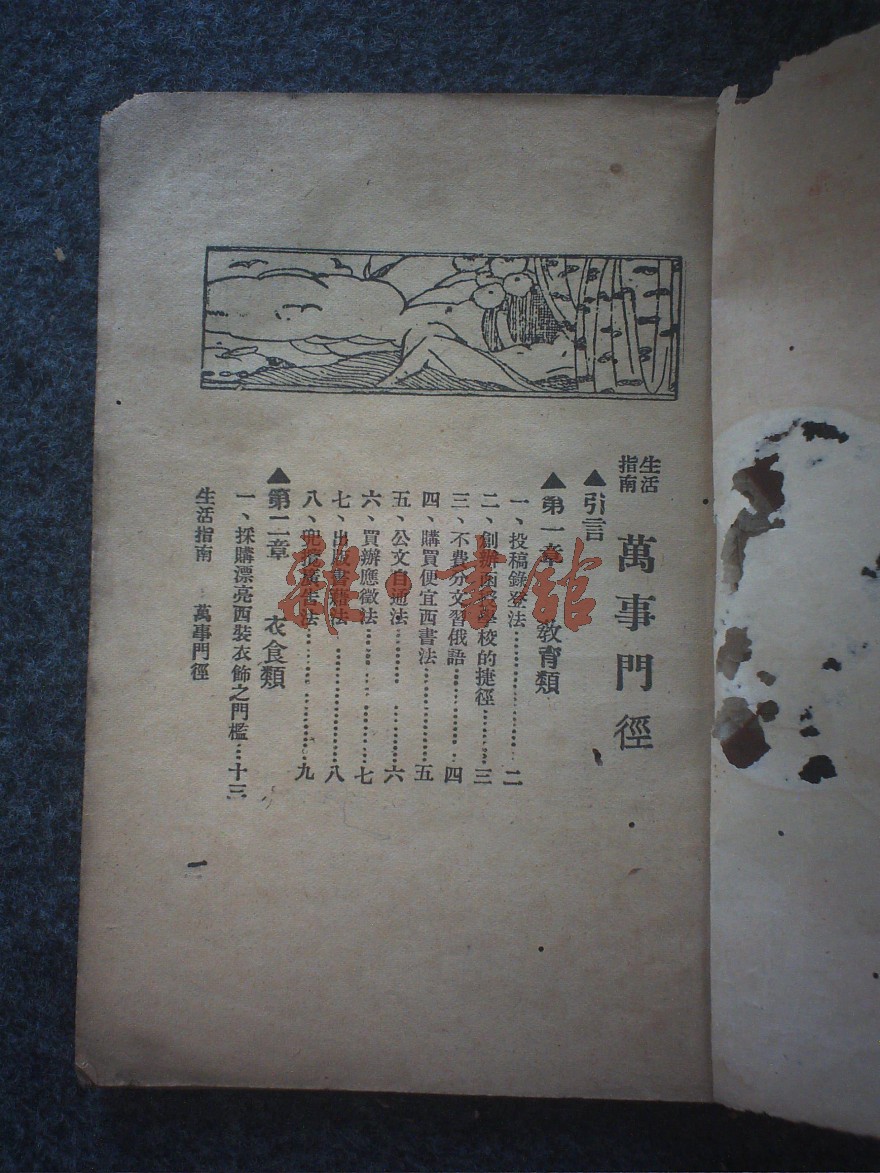 生活指南 萬事門徑
▲引言
▲第一章 教育類
一、投稿錄登法……二
二、創辦函授學校的捷徑……三
三、不費分文習俄語……四
四、購買便宜西書法……五
五、公文自通法……六
六、買辦應徵法……七
七、出版書籍法……八
八、兜廣告法……九
▲第二章 衣食類
一、採購漂亮西裝衣飾之門檻……十三
生活指南 萬事門徑
一
雜·書館